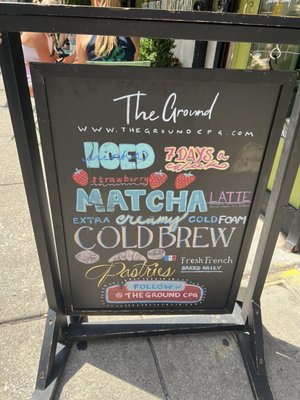 The Ground
WWW.THEGROUNDCPG.COM
ICED
drinks
7 DAYS a
week
strawberry
MATCHA LATTE
EXTRA creamy COLD FOAM
COLD BREW
Pastries Fresh French
BAKED DAILY
FOLLOW
@THE GROUND CPG